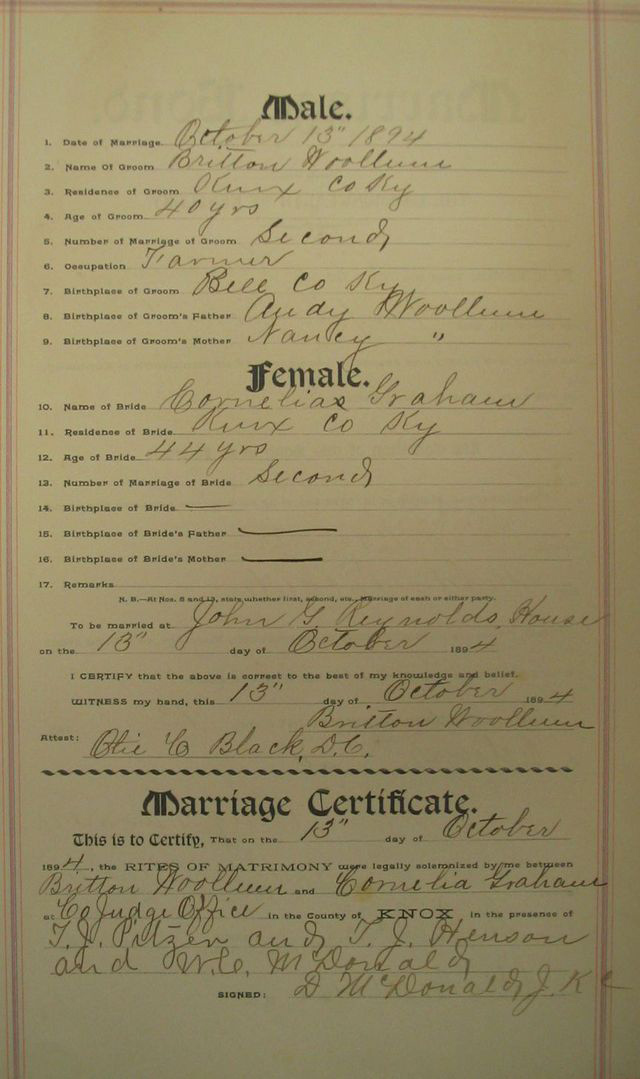 Male.
1. Date of Marriage October 13" 1894
2. Name Of Groom Britton Woollum
3. Residence of Groom Knox Co Ky
4. Age of Groom 40 yrs
5. Number of Marriage of Groom Second
6. Occupation Farmer
7. Birthplace of Groom Bell Co Ky
8. Birthplace of Groom's Father Andy Woollum
9. Birthplace of Groom's Mother Nancy "
Female.
10. Name of Bride Cornelias Graham
11. Residence of Bride Knox Co Ky
12. Age of Bride 44 yrs
13. Number of Marriage of Bride Second
14. Birthplace of Bride —
15. Birthplace of Bride's Father —
16. Birthplace of Bride's Mother —
17. Remarks
N. B.—At Nos. 5 and 13, state whether first, second, etc., Marriage of each or either party.
To be married at John G Reynolds House
on the 13" day of October 1894
I CERTIFY that the above is correct to the best of my knowledge and belief.
WITNESS my hand, this 13" day of October 1894
Britton Woollum
Attest: Otie C Black, D.C.
Marriage Certificate.
This is to Certify, That on the 13" day of October
1894, the RITES OF MATRIMONY were legally solemnized by me between
Britton Woollum and Cornelia Graham
at Co Judge Office in the County of KNOX in the presence of
T. J. Pitzer and T. J. Henson
and W.C. McDonald
SIGNED: D McDonald, J. K C